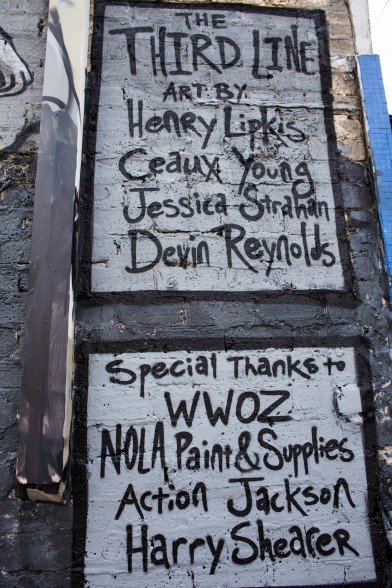 THE
THIRD LINE
ART BY
Henry Lipkis
Ceaux Young
Jessica Strahan
Devin Reynolds
Special Thanks to
WWOZ
NOLA Paint & Supplies
Action Jackson
Harry Shearer